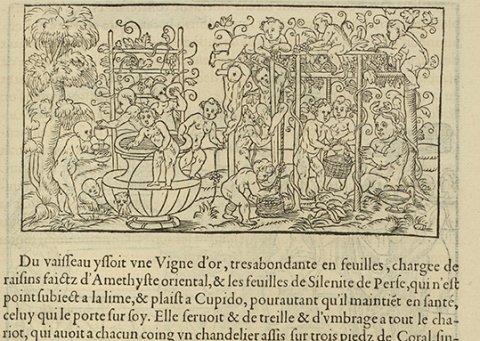 Du vaiſſeau yſſoit vne Vigne d'or, tresabondante en feuilles, chargee de
raiſins faictz d'Amethyſte oriental, & les feuilles de Silenite de Perſe, qui n'eſt
point ſubiect a la lime, & plaiſt a Cupido, pourautant qu'il maintiẽt en ſanté,
celuy qui le porte ſur ſoy. Elle ſeruoit & de treille & d'vmbrage a tout le cha-
riot, qui auoit a chacun coing vn chandelier aſſis ſur trois piedz de Coral, ſin-